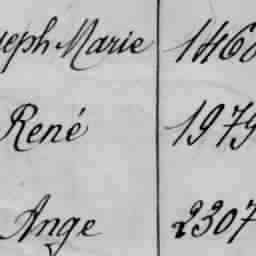 seph Marie 1460
René 1979
Ange 2307